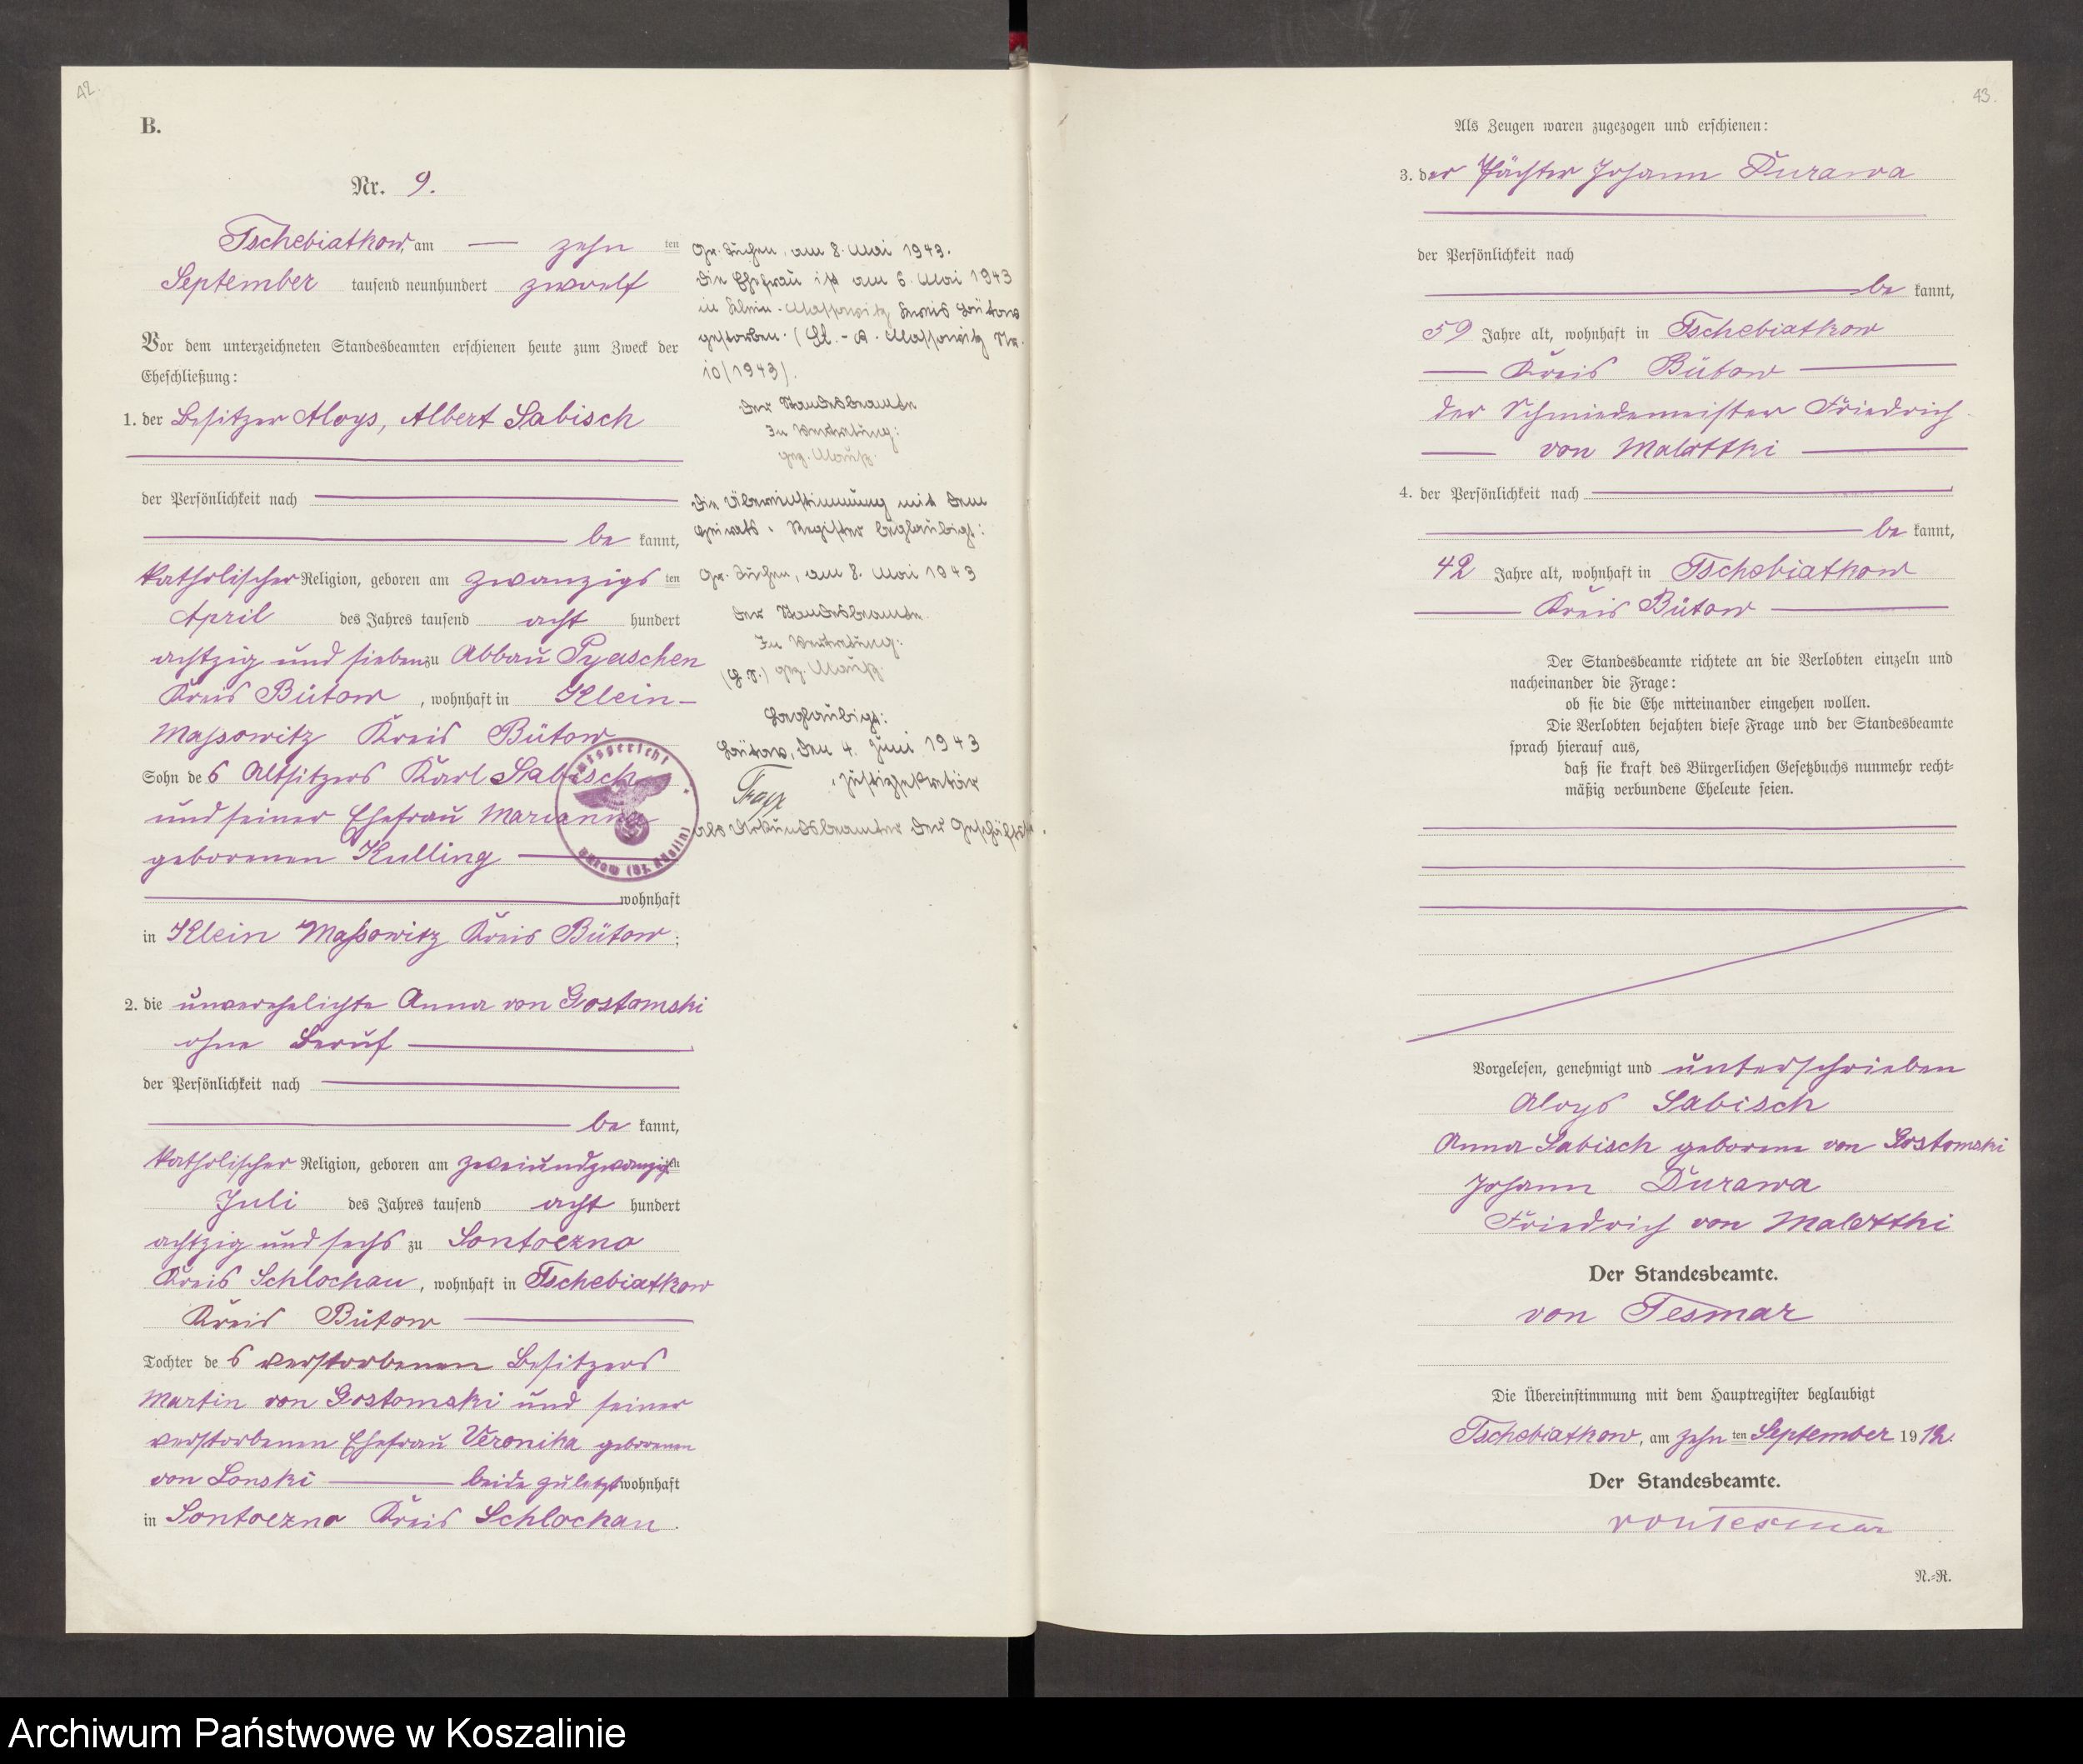 42.
B.
Nr. 9.
Tschebiatkow, am — zehn ten
September tausend neunhundert zwoelf
Vor dem unterzeichneten Standesbeamten erschienen heute zum Zweck der
Eheschließung:
1. der Besitzer Aloys, Albert Sabisch
der Persönlichkeit nach
be kannt,
katholischer Religion, geboren am zwanzigs ten
April des Jahres tausend acht hundert
achtzig und sieben zu Abbau Pyaschen
Kreis Bütow, wohnhaft in Klein-
Massowitz Kreis Bütow
Sohn des Altsitzers Karl Sabisch
und seiner Ehefrau Marianna
geborenen Kulling
wohnhaft
in Klein Massowitz Kreis Bütow;
2. die unverehelichte Anna von Gostomski
ohne Beruf
der Persönlichkeit nach
be kannt,
katholischer Religion, geboren am zweiundzwanzigsten
Juli des Jahres tausend acht hundert
achtzig und sechs zu
Kreis Schlochau, wohnhaft in Tschebiatkow
Kreis Bütow
Tochter des verstorbenen Besitzers
Martin von Gostomski und seiner
verstorbenen Ehefrau Veronika geborenen
von Lonski — beide zuletzt wohnhaft
in Kreis Schlochau.
Gr. Tuchen, am 8. Mai 1943.
Die Ehefrau ist am 6. Mai 1943
in Klein-Massowitz Kreis Bütow
gestorben. (St.-A. Massowitz Nr.
10/1943).
Der Standesbeamte
In Vertretung:
gez.
Die Übereinstimmung mit dem
Heirats-Register beglaubigt:
Gr. Tuchen, am 8. Mai 1943
Der Standesbeamte.
In Vertretung:
(L. S.) gez.
Beglaubigt:
Bütow, den 4. Juni 1943
Justizsekretär
als Urkundsbeamter der Geschäftsst.
Amtsgericht
Bütow (Bz. Köslin)
43.
Als Zeugen waren zugezogen und erschienen:
3. der Pächter Johann Durawa
der Persönlichkeit nach
be kannt,
59 Jahre alt, wohnhaft in Tschebiatkow
Kreis Bütow
der Schmiedemeister Friedrich
von Malottki
4. der Persönlichkeit nach
be kannt,
42 Jahre alt, wohnhaft in Tschebiatkow
Kreis Bütow
Der Standesbeamte richtete an die Verlobten einzeln und
nacheinander die Frage:
ob sie die Ehe miteinander eingehen wollen.
Die Verlobten bejahten diese Frage und der Standesbeamte
sprach hierauf aus,
daß sie kraft des Bürgerlichen Gesetzbuchs nunmehr recht-
mäßig verbundene Eheleute seien.
Vorgelesen, genehmigt und unterschrieben
Aloys Sabisch
Anna Sabisch geborene von Gostomski
Johann Durawa
Friedrich von Malottki
Der Standesbeamte.
von Tesmar
Die Übereinstimmung mit dem Hauptregister beglaubigt
Tschebiatkow, am zehn ten September 1912.
Der Standesbeamte.
von Tesmar
N.-R.
Archiwum Państwowe w Koszalinie